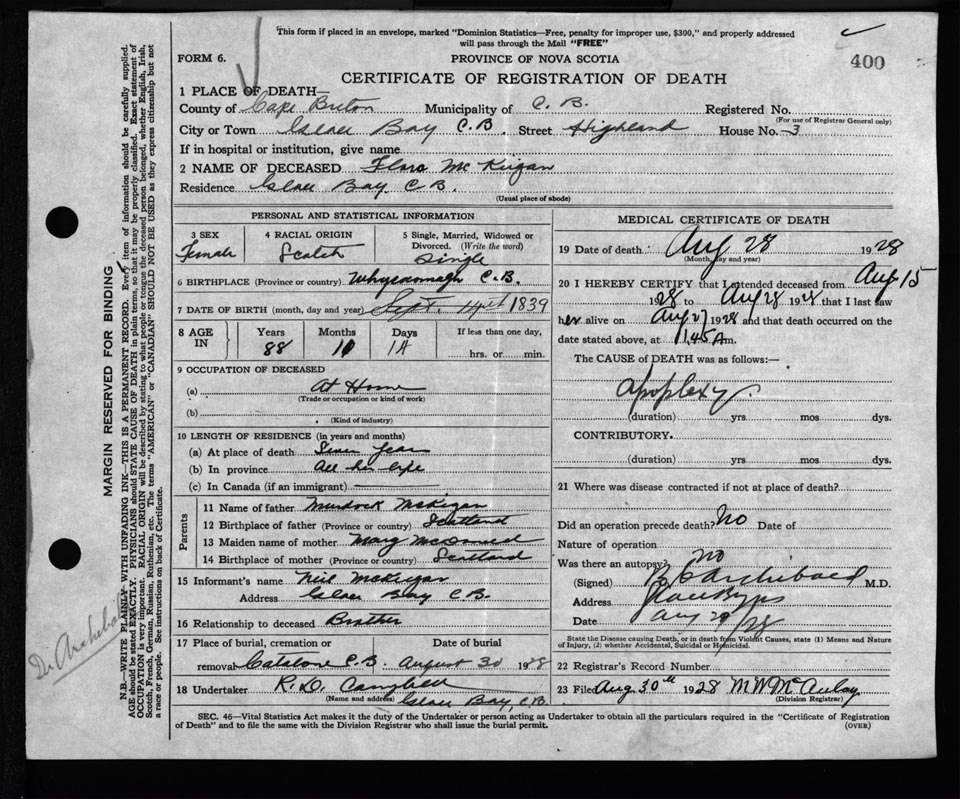 This form if placed in an envelope, marked "Dominion Statistics—Free, penalty for improper use, $300," and properly addressed
will pass through the Mail "FREE"
400
FORM 6.
PROVINCE OF NOVA SCOTIA
CERTIFICATE OF REGISTRATION OF DEATH
1 PLACE OF DEATH—
County of Cape Breton Municipality of C. B. Registered No.
(For use of Registrar General only)
City or Town Glace Bay C.B. Street Highland House No. 3
If in hospital or institution, give name
2 NAME OF DECEASED Flora McKeigan
Residence Glace Bay C B.
(Usual place of abode)
PERSONAL AND STATISTICAL INFORMATION
3 SEX 4 RACIAL ORIGIN 5 Single, Married, Widowed or
Divorced. (Write the word)
Female Scotch Single
6 BIRTHPLACE (Province or country) Whycocomagh C.B.
7 DATE OF BIRTH (month, day and year) Sept. 14th 1839
8 AGE IN Years Months Days If less than one day,
88 11 14 hrs. or min.
9 OCCUPATION OF DECEASED
(a) At Home
(Trade or occupation or kind of work)
(b)
(Kind of industry)
10 LENGTH OF RESIDENCE (in years and months)
(a) At place of death Seven Years
(b) In province All her life
(c) In Canada (if an immigrant)
Parents
11 Name of father Murdock McKigan
12 Birthplace of father (Province or country) Scotland
13 Maiden name of mother Mary McDonald
14 Birthplace of mother (Province or country) Scotland
15 Informant's name Neil McKigan
Address Glace Bay C.B.
16 Relationship to deceased Brother
17 Place of burial, cremation or Date of burial
removal Catalone C.B. August 30 1928
18 Undertaker R. D. Campbell
(Name and address) Glace Bay, C.B.
MEDICAL CERTIFICATE OF DEATH
19 Date of death Aug 28 1928
(Month, day and year)
20 I HEREBY CERTIFY that I attended deceased from Aug 15
1928 to Aug 28 1928 that I last saw
her alive on Aug 27 1928 and that death occurred on the
date stated above, at 11.45 A m.
The CAUSE of DEATH was as follows:—
Apoplexy.
(duration) yrs mos dys.
CONTRIBUTORY.
(duration) yrs mos dys.
21 Where was disease contracted if not at place of death?
Did an operation precede death? No Date of
Nature of operation
Was there an autopsy No
(Signed) Archibald M.D.
Address Glace Bay
Date Aug 29/28
State the Disease causing Death, or in death from Violent Causes, state (1) Means and Nature
of Injury, (2) whether Accidental, Suicidal or Homicidal.
22 Registrar's Record Number
23 Filed Aug. 30th 1928 M W McAulay
(Division Registrar)
SEC. 46—Vital Statistics Act makes it the duty of the Undertaker or person acting as Undertaker to obtain all the particulars required in the "Certificate of Registration
of Death" and to file the same with the Division Registrar who shall issue the burial permit.
(OVER)
MARGIN RESERVED FOR BINDING
N.B.—WRITE PLAINLY WITH UNFADING INK—THIS IS A PERMANENT RECORD. Every item of information should be carefully supplied.
AGE should be stated EXACTLY. PHYSICIANS should STATE CAUSE OF DEATH in plain terms, so that it may be properly classified. Exact statement of
OCCUPATION is very important. RACIAL ORIGIN will be described by stating to what people or tongue the deceased person belonged, whether English, Irish,
Scotch, French, German, Russian, Ruthenian, etc. The terms "AMERICAN" or "CANADIAN" SHOULD NOT BE USED as they express citizenship but not
a race or people. See instructions on back of Certificate.
Dr Archibald